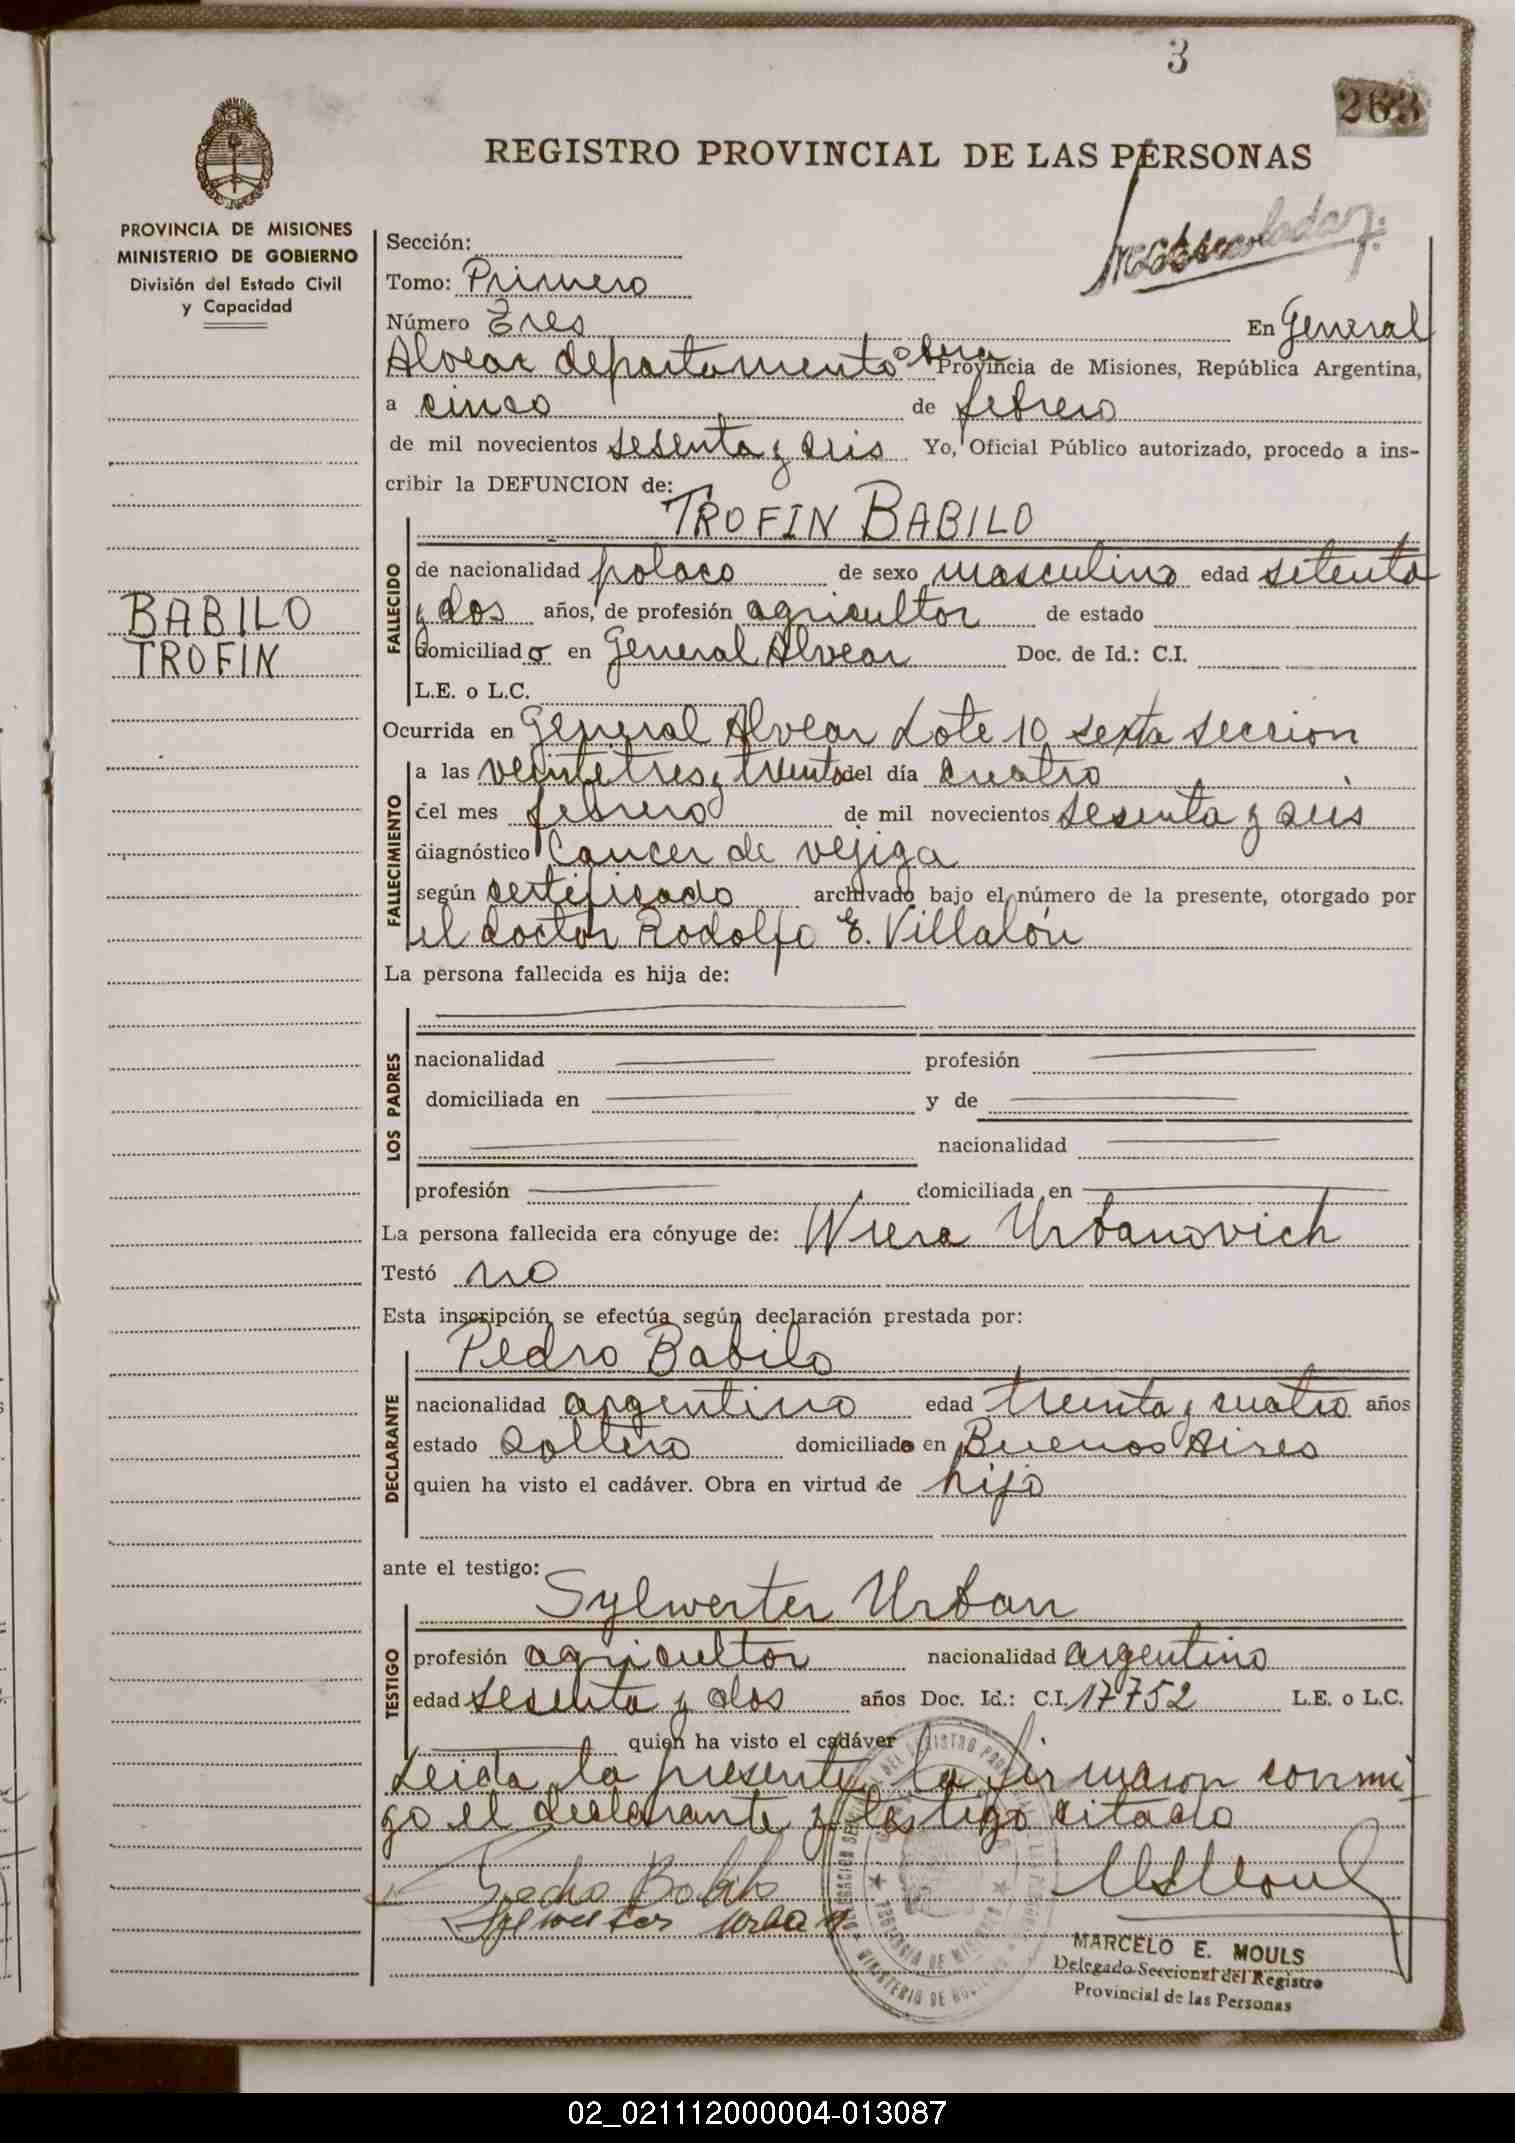 3
263
REGISTRO PROVINCIAL DE LAS PERSONAS
PROVINCIA DE MISIONES
MINISTERIO DE GOBIERNO
División del Estado Civil
y Capacidad
Sección:
Tomo: Primero
Número Tres En General
Alvear departamento Obera Provincia de Misiones, República Argentina,
a cinco de febrero
de mil novecientos sesenta y seis Yo, Oficial Público autorizado, procedo a ins-
cribir la DEFUNCION de:
TROFIN BABILO
BABILO
TROFIN
FALLECIDO
de nacionalidad polaco de sexo masculino edad setenta
y dos años, de profesión agricultor de estado
domiciliado en General Alvear Doc. de Id.: C.I.
L.E. o L.C.
Ocurrida en General Alvear Lote 10 sexta seccion
FALLECIMIENTO
a las veintetres y treinta del día cuatro
del mes febrero de mil novecientos sesenta y seis
diagnóstico Cancer de vejiga
según certificado archivado bajo el número de la presente, otorgado por
el doctor Rodolfo E. Villalón
La persona fallecida es hija de:
LOS PADRES
nacionalidad profesión
domiciliada en y de
nacionalidad
profesión domiciliada en
La persona fallecida era cónyuge de: Wiera Urbanovich
Testó no
Esta inscripción se efectúa según declaración prestada por:
Pedro Babilo
DECLARANTE
nacionalidad argentino edad treinta y cuatro años
estado soltero domiciliado en Buenos Aires
quien ha visto el cadáver. Obra en virtud de hijo
ante el testigo:
Sylwerter Urban
TESTIGO
profesión agricultor nacionalidad argentino
edad sesenta y dos años Doc. Id.: C.I. 17752 L.E. o L.C.
quien ha visto el cadáver
Leida la presente, la firmaron conmi
go el declarante y testigo citado
Pedro Babilo
Sylwester Urban
MARCELO E. MOULS
Delegado Seccional del Registro
Provincial de las Personas
02_021112000004-013087